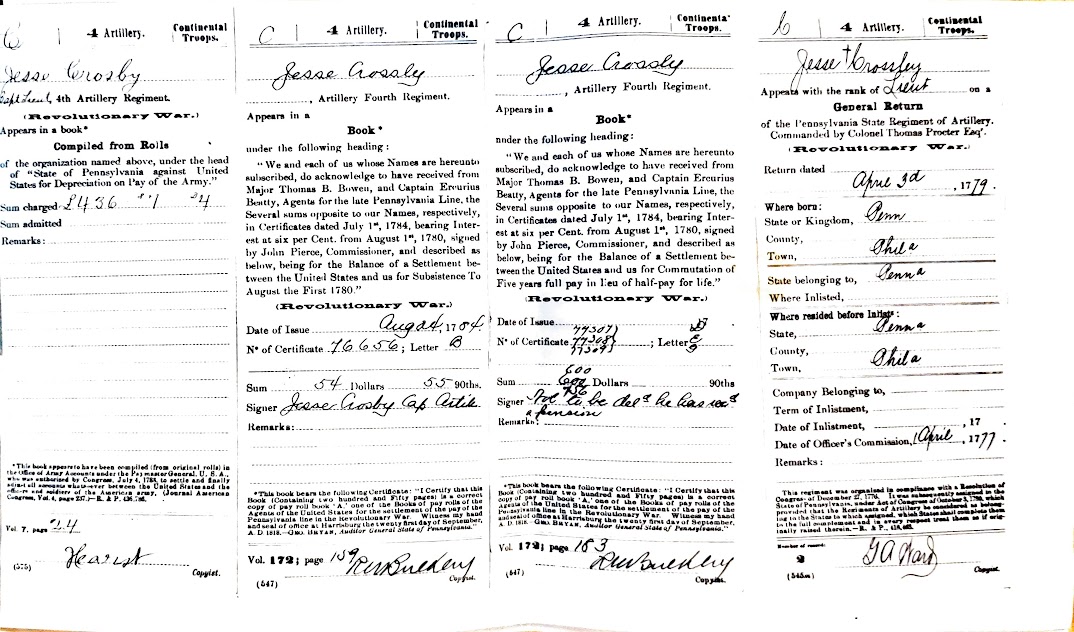 C | 4 Artillery. | Continental Troops.
Jesse Crosby
Capt Lieut, 4th Artillery Regiment.
(Revolutionary War.)
Appears in a book*
Compiled from Rolls
of the organization named above, under the head
of "State of Pennsylvania against United
States for Depreciation on Pay of the Army."
Sum charged £436 " 1 " 4
Sum admitted
Remarks:
*This book appears to have been compiled (from original rolls) in
the Office of Army Accounts under the Paymaster General, U. S. A.,
who was authorized by Congress, July 4, 1783, to settle and finally
adjust all accounts whatsoever between the United States and the
officers and soldiers of the American army. (Journal American
Congress, Vol. 4, page 237.)—R. & P.
Vol. 7. page 24
Hearst
(575) Copyist.
C | 4 Artillery. | Continental Troops.
Jesse Crossly
, Artillery Fourth Regiment.
Appears in a
Book*
under the following heading:
"We and each of us whose Names are hereunto
subscribed, do acknowledge to have received from
Major Thomas B. Bowen, and Captain Ercurius
Beatty, Agents for the late Pennsylvania Line, the
Several sums opposite to our Names, respectively,
in Certificates dated July 1, 1784, bearing Inter-
est at six per Cent. from August 1st, 1780, signed
by John Pierce, Commissioner, and described as
below, being for the Balance of a Settlement be-
tween the United States and us for Subsistence To
August the First 1780."
(Revolutionary War.)
Date of Issue Aug 24, 1784.
No of Certificate 76656; Letter B
Sum 54 Dollars 55 90ths.
Signer Jesse Crosby Cap Artil
Remarks:
*This book bears the following Certificate: "I Certify that this
Book (Containing two hundred and Fifty pages) is a correct
copy of pay roll book 'A,' one of the Books of Pay rolls of the
Agents of the United States for the settlement of the pay of the
Pennsylvania line in the Revolutionary War. Witness my hand
and seal of office at Harrisburg the twenty first day of September,
A. D. 1818.—GEO. BRYAN, Auditor General State of Pennsylvania."
Vol. 172; page 159
(547) Copyist.
C | 4 Artillery. | Continental Troops.
Jesse Crossly
, Artillery Fourth Regiment.
Appears in a
Book*
under the following heading:
"We and each of us whose Names are hereunto
subscribed, do acknowledge to have received from
Major Thomas B. Bowen, and Captain Ercurius
Beatty, Agents for the late Pennsylvania Line, the
Several sums opposite to our Names, respectively,
in Certificates dated July 1, 1784, bearing Inter-
est at six per Cent. from August 1st, 1780, signed
by John Pierce, Commissioner, and described as
below, being for the Balance of a Settlement be-
tween the United States and us for Commutation of
Five years full pay in lieu of half-pay for life."
(Revolutionary War.)
Date of Issue 17
77307
No of Certificate 77308; Letter E
77309
600
Sum 600 Dollars 90ths
Signer Not to be deld he has recd
a pension
Remarks:
*This book bears the following Certificate: "I Certify that this
Book (Containing two hundred and Fifty pages) is a correct
copy of pay roll book 'A,' one of the Books of Pay rolls of the
Agents of the United States for the settlement of the pay of the
Pennsylvania line in the Revolutionary War. Witness my hand
and seal of office at Harrisburg the twenty first day of September,
A. D. 1818.—GEO. BRYAN, Auditor General State of Pennsylvania."
Vol. 172; page 183
(547) Copyist.
C | 4 Artillery. | Continental Troops.
Jesse Crossley
Appears with the rank of Lieut on a
General Return
of the Pennsylvania State Regiment of Artillery.
Commanded by Colonel Thomas Procter Esqr.
(Revolutionary War.)
Return dated
April 3d, 1779.
Where born:
State or Kingdom, Penn
County,
Town, Phila
State belonging to, Penna
Where Inlisted,
Where resided before Inlistt:
State, Penna
County,
Town, Phila
Company Belonging to,
Term of Inlistment,
Date of Inlistment, , 17
Date of Officer's Commission, 1 April, 1777.
Remarks:
This regiment was organized in compliance with a Resolution of
Congress of December 27, 1776. It was subsequently assigned to the
State of Pennsylvania, under Act of Congress of
provided that the Regiments of Artillery be considered as belong-
ing to the States to which assigned, which States shall complete them
to the full complement and in every respect treat them as if orig-
inally raised therein.—R. & P.
Number of record:
2 G A Ward
(545m) Copyist.